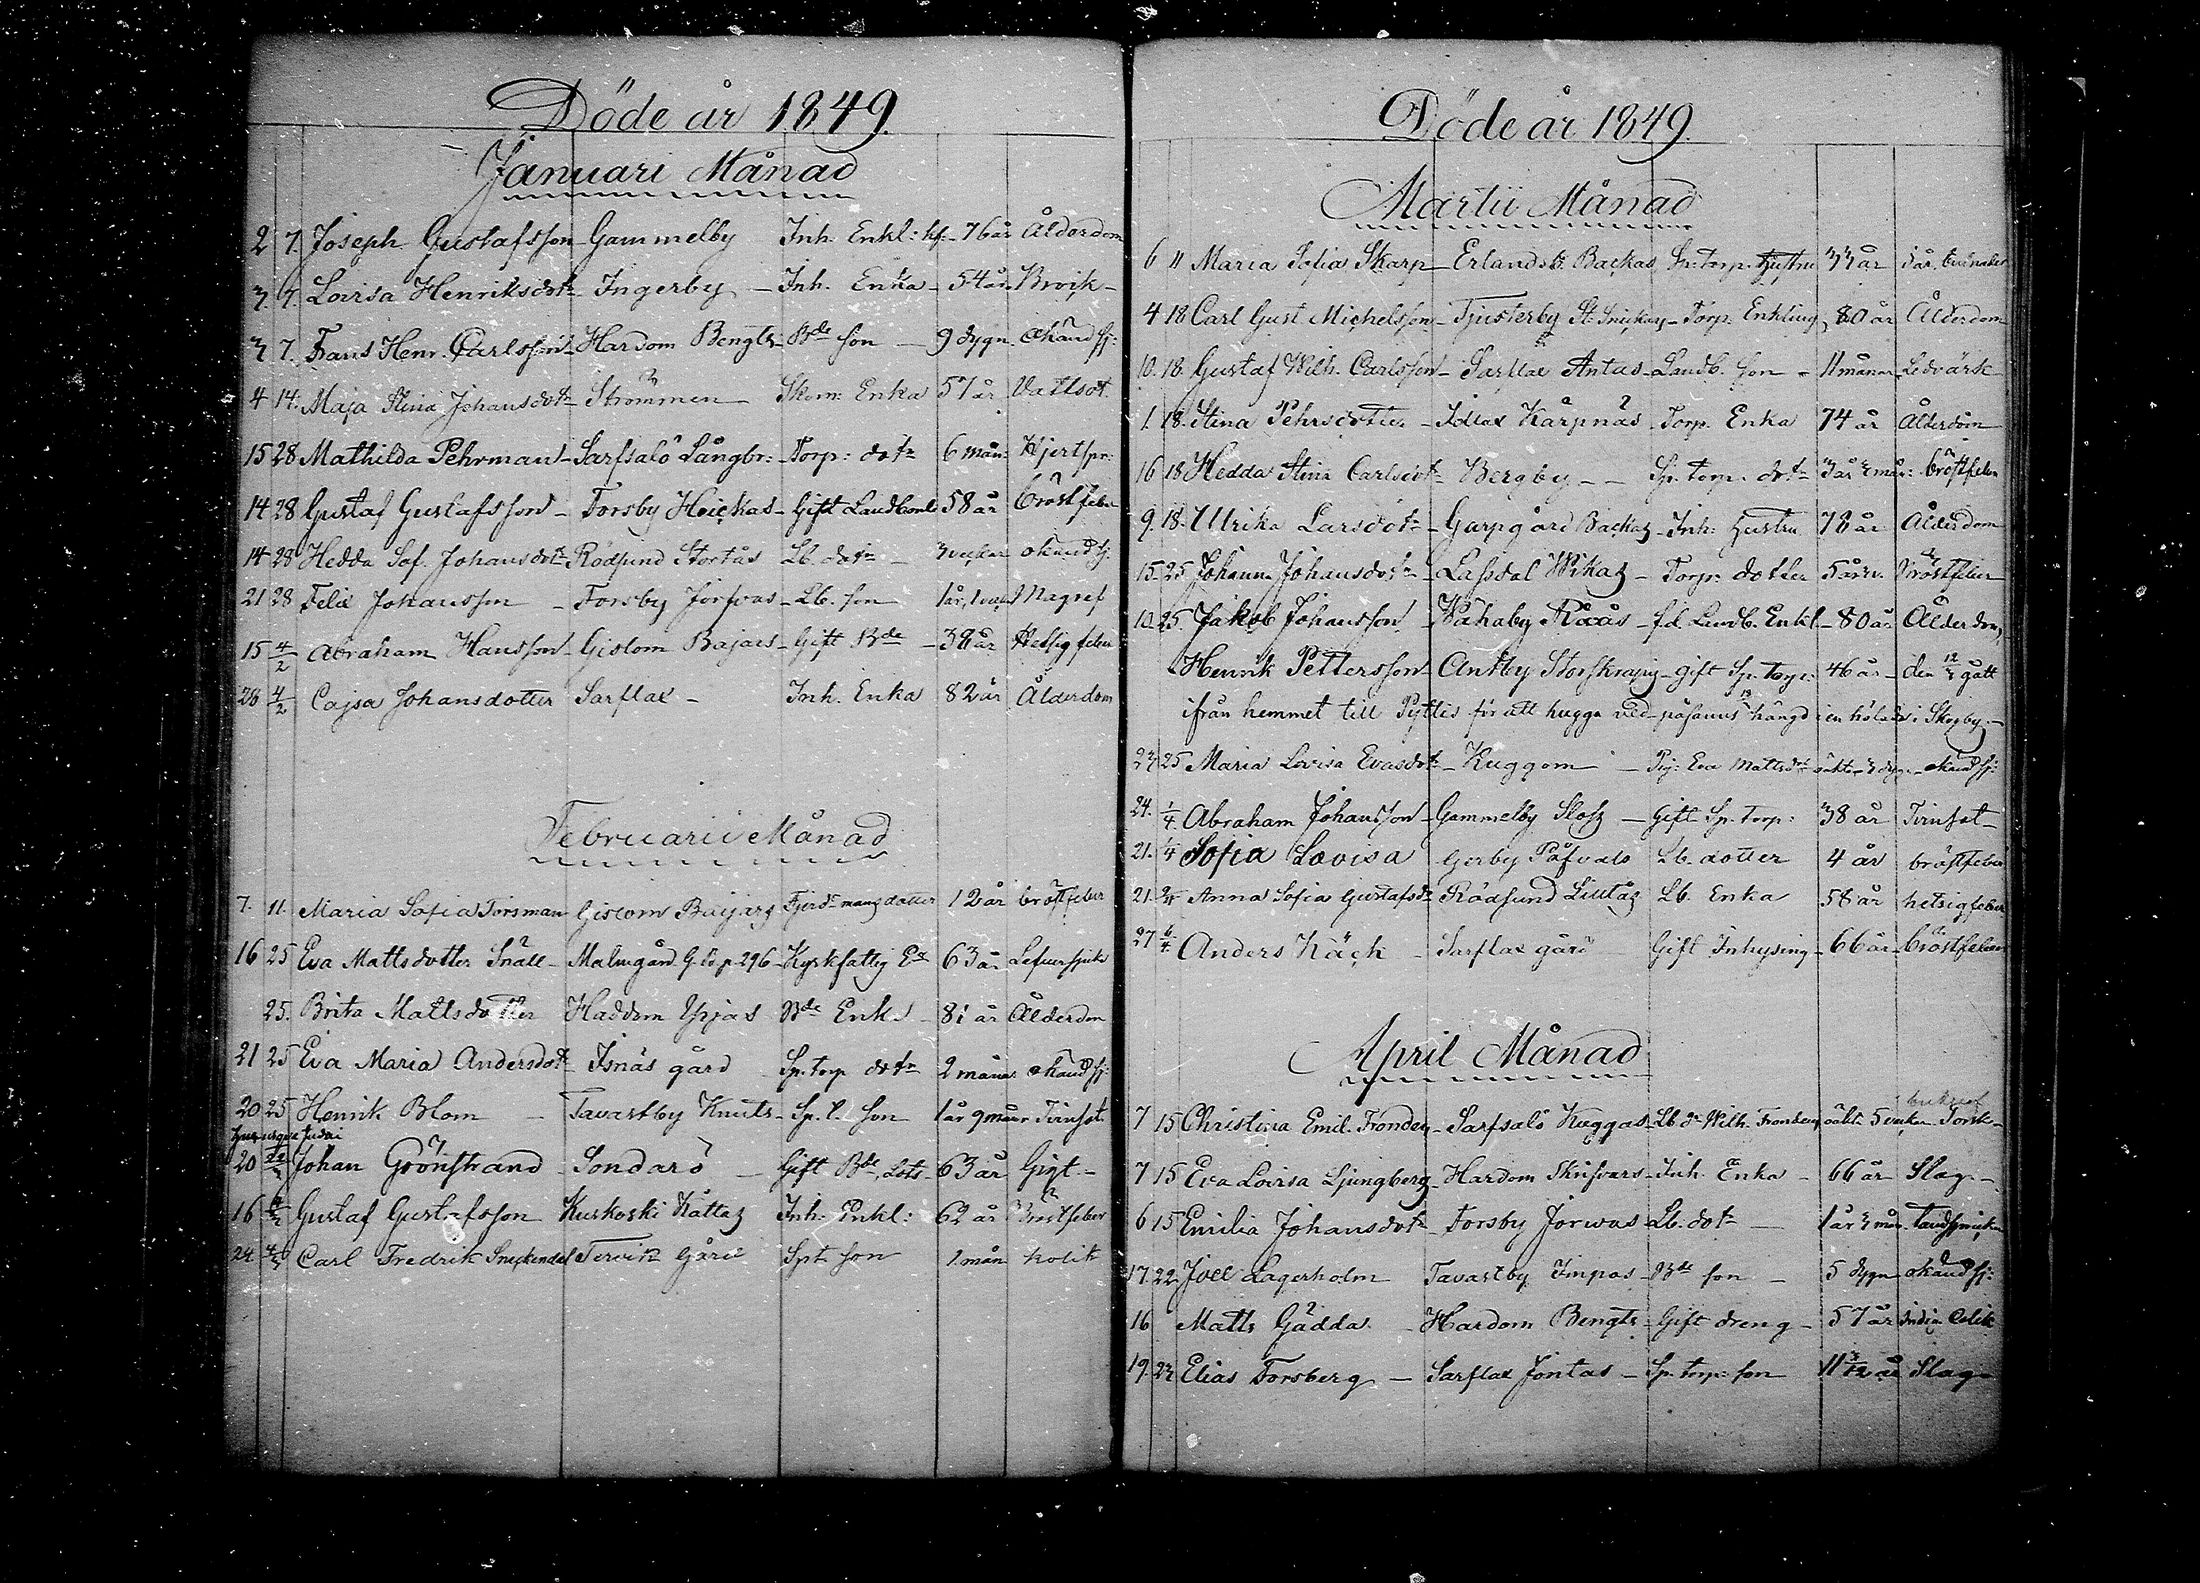 Döde år 1849.
Januari Månad
2 7. Joseph Gustafsson Gammelby Inh. Enkl: 76 år Ålderdom
3. 7. Lovisa Henriksdotr Ingerby Inh. Enka 54 år
3 7. Frans Henr. Carlsson Hardom Bengts Bde son 9 dygn okänd sj:
4 14. Maja Stina Johansdotr Strömmen Skom: Enka 57 år Vattsot.
15 28 Mathilda Pehrman Sarfsalö Långbr: Torp: dotr 6 mån: Hjertspr:
14 28 Gustaf Gustafsson Forsby Heickas Gift Landbonde 58 år bröstfeber
14 28 Hedda Sof. Johansdotr Rödsund Stortås Lb. dotr 3 veckor okänd sj.
21 28 Felix Johansson Forsby Jorfvas Lb. son 1 år, Magref
15 4/2 Abraham Hansson Gislom Bajars Gift Bde 38 år Hetsig feber
28 4/2 Cajsa Johansdotter Sarflax Inh. Enka 82 år Ålderdom
Februarii Månad
7. 11. Maria Sofia Torsman Gislom Baijars Fjerd: mans dotter 12 år bröstfeber
16 25 Eva Mattsdotter Snäll Malmgård p. 296 Kyrkfattig 63 år Lefversjuk
25. Brita Mattsdotter Haddom Ypjas Bde Enka 81 år Ålderdom
21 25 Eva Maria Andersdotr Isnäs gård Sp. torp dotr 2 måna. okänd sj:
20 25 Henrik Blom Tavastby Knuts Sp. l. son 1 år 9 mån Tvinsot.
20 Johan Grönstrand Sondarö Gift Bde, Lots 63 år Gigt
16 Gustaf Gustafsson Kuskoski Kåttas Inh. Enkl: 62 år Bröstfeber
24 4/3 Carl Fredrik Snickendal Tervik Gård Spt son 1 mån kolik
Döde år 1849.
Martii Månad
6 11 Maria Sofia Skarp Erlands Backas Sp. torp. Hustru 33 år
4 18 Carl Gust. Michelsson Tjusterby St. Torp. Enkling 80 år Ålderdom
10. 18. Gustaf Wilh. Carlsson Sarflax Antas Landb. son 11 månar Ledvärk
1. 18. Stina Pehrsdotter Idlax Kärpnäs Torp. Enka 74 år Ålderdom
16 18 Hedda Stina Carlsdotr Bergby Sp. torp. dotr 3 år 3 mån: bröstfeber
9. 18. Ulrika Larsdotr Garpgård Backas Inh: Hustru 78 år Ålderdom
15. 25 Johanna Johansdotr Lassdal Wikas Torp: dotter 5 år Bröstfeber
10. 25. Jakob Johansson Wåhaby Råås f.d. Landb. Enkl. 80 år Ålderdom,
Henrik Pettersson Antby gift Sp. torp: 46 år den 12/3 gått
ifrån hemmet till Pyttis för att hugga ved hängd i en hölada i Skogby.
23 25 Maria Lovisa Evasdotr Kuggom Pig: Eva Mattsdotr oäkta 3 dygn okänd sj:
24. 1/4 Abraham Johansson Gammelby Gift Sp. torp: 38 år Tvinsot
21. 1/4 Sofia Lovisa Gerby Påfvals Lb. dotter 4 år bröstfeber
21. Anna Sofia Gustafsdr Rödsund Lilltås Lb. Enka 58 år hetsigfeber
27 6/4 Anders Käck Sarflax gård Gift Inhysing 66 år bröstfeber
April Månad
7 15 Christina Emil. Fronden Sarfsalö Kuggas Lb. dr Wilh. Fronden oäkta 5 veckor Torsk
7 15 Eva Lovisa Ljungberg Hardom Skrifvars Inh. Enka 66 år Slag
6 15 Emilia Johansdotr Forsby Jorwas Lb. dotr 1 år 3 mån.
17. 22. Joel Lagerholm Tavastby Impas Bde son 5 dygn okänd sj:
16 Matts Gädda Hardom Bengts Gift dreng 57 år
19. 23. Elias Forsberg Sarflax Jontas Sp. torp: son 11 3/12 år Slag